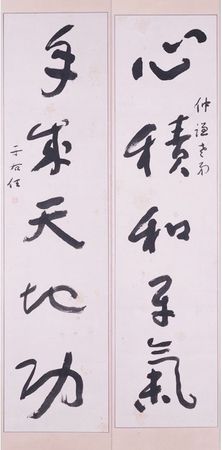 心積和平氣
仲謙老弟
手成天地功
于右任